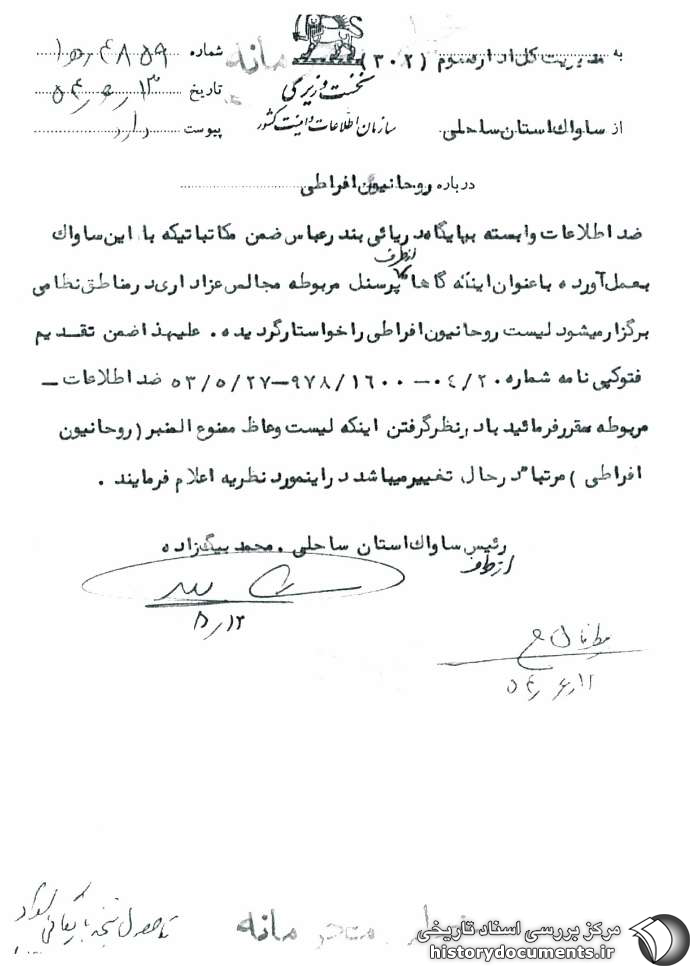 به مدیریت کل اداره سوم (۳۰۲)
شماره
نخست وزیری
تاریخ
سازمان اطلاعات و امنیت کشور
از ساواک استان ساحلی
پیوست دارد
درباره روحانیون افراطی
ضد اطلاعات وابسته بپایگاه دریائی بندرعباس ضمن مکاتباتیکه با این ساواک
از طرف
بعمل آورده باعنوان اینکه گاها پرسنل مربوطه مجالس عزاداری در مناطق نظامی
برگزار میشود لیست روحانیون افراطی را خواستار گردیده. علیهذا ضمن تقدیم
فتوکپی نامه شماره ۰۴/۲۰ــ۹۷۸/۱۶۰۰ــ۵۳/۵/۲۷ ضد اطلاعات ــ
مربوطه مقرر فرمائید با در نظر گرفتن اینکه لیست وعاظ ممنوع المنبر (روحانیون
افراطی) مرتبا در حال تغییر میباشد در اینمورد نظریه اعلام فرمایند.
رئیس ساواک استان ساحلی. محمد بیگ زاده
از طرف
۵/۱۲
مانه
مرکز بررسی اسناد تاریخی
historydocuments.ir